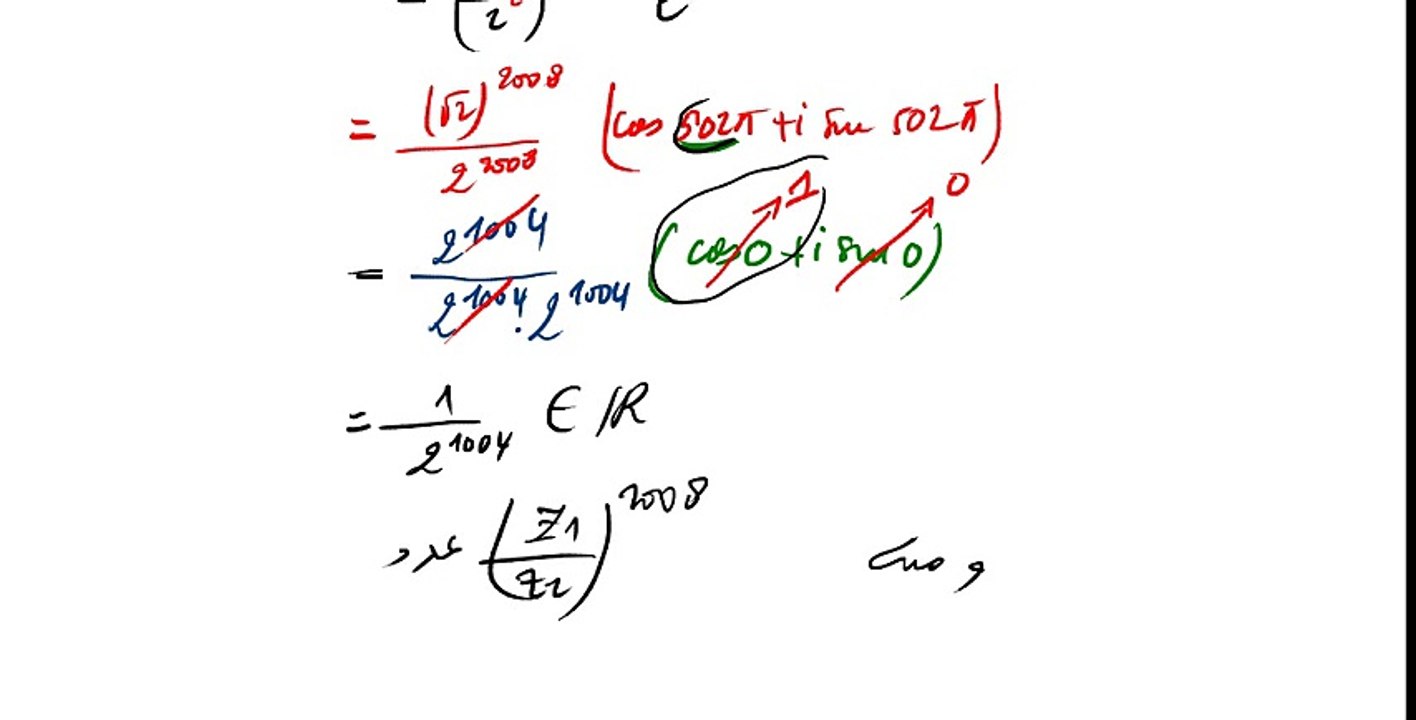 = (√2)^2008 / 2^2008 (cos 502π + i sin 502π)
= 2^1004 / 2^1004 . 2^1004 (cos 0 + i sin 0) 1 0
= 1 / 2^1004 ∈ ℝ
ومنه (Z1 / Z2)^2008 عدد